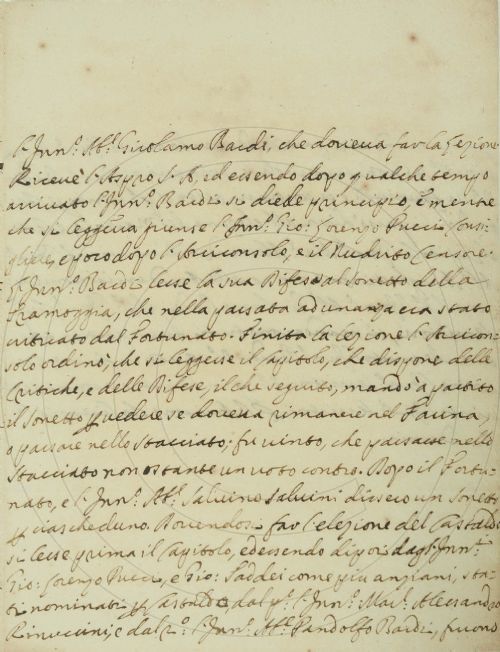 l'Inn.º Ab.e Girolamo Bardi, che doveva far la Lezione.
Ricevè l'Aspro S. A. ed essendo dopo qualche tempo
arrivato l'Inn.º Bardi si diede principio, e mentre
che si leggeva giunse l'Inn.º Gio: Lorenzo Pucci Consi-
gliere, e poco dopo l'Arciconsolo, e il Nudrito Censore.
L'Inn.º Bardi lesse la sua Difesa al sonetto della
Tramoggia, che nella passata adunanza era stato
criticato dal Fortunato. Finita la lezione l'Arcicon-
solo ordinò, che si leggesse il Capitolo, che dispone delle
Critiche, e delle Difese, il che seguito, mandò a partito
il sonetto p vedere se doveva rimanere nel Farina
o passare nello Stacciato: fu vinto, che passasse nello
Stacciato non ostante un voto contro. Dopo il Fortu-
nato, e l'Inn.º Ab.e Salvino Salvini dissero un sonetto
p ciascheduno. Dovendosi far l'elezione del Castaldo
si lesse prima il Capitolo, ed essendo di poi dagl'Inn.i
Gio: Lorenzo Pucci, e Gio: Taddei come più anziani, sta-
ti nominati p Castaldo dal p.º l'Inn.º Mar. Alessandro
Rinuccini, e dal 2.º l'Inn.º Ab.e Pandolfo Bardi, furono